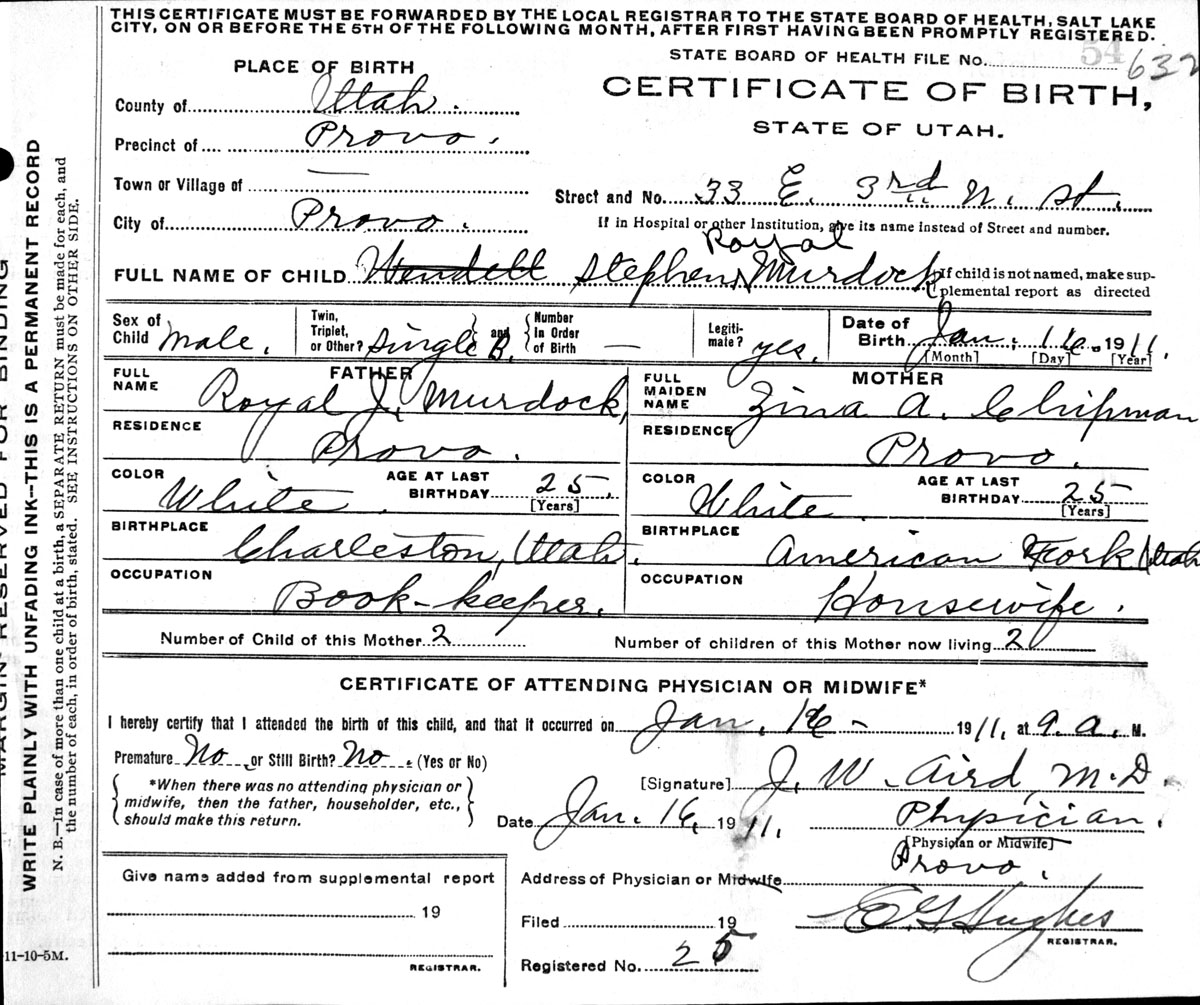 THIS CERTIFICATE MUST BE FORWARDED BY THE LOCAL REGISTRAR TO THE STATE BOARD OF HEALTH, SALT LAKE
CITY, ON OR BEFORE THE 5TH OF THE FOLLOWING MONTH, AFTER FIRST HAVING BEEN PROMPTLY REGISTERED.
STATE BOARD OF HEALTH FILE No. 54 632
PLACE OF BIRTH
CERTIFICATE OF BIRTH,
STATE OF UTAH.
County of Utah.
Precinct of Provo.
Town or Village of —
Street and No. 33 E. 3rd. N. St.
City of Provo.
If in Hospital or other Institution, give its name instead of Street and number.
Royal
FULL NAME OF CHILD Wendell Stephen Murdock { If child is not named, make sup-
plemental report as directed
Sex of Child Male.
Twin, Triplet, or Other? Single B. } and { Number In Order of Birth —
Legiti-mate? yes.
Date of Birth Jan. 16. 1911.
[Month] [Day] [Year]
FATHER
FULL NAME Royal J. Murdock,
RESIDENCE Provo.
COLOR White. AGE AT LAST BIRTHDAY 25. [Years]
BIRTHPLACE Charleston, Utah.
OCCUPATION Book-keeper.
MOTHER
FULL MAIDEN NAME Zina A. Chipman
RESIDENCE Provo.
COLOR White. AGE AT LAST BIRTHDAY 25 [Years]
BIRTHPLACE American Fork Utah
OCCUPATION Housewife.
Number of Child of this Mother 2 Number of children of this Mother now living 2
CERTIFICATE OF ATTENDING PHYSICIAN OR MIDWIFE*
I hereby certify that I attended the birth of this child, and that it occurred on Jan. 16 - 1911. at 9. a. M.
Premature No. or Still Birth? No. (Yes or No)
{ *When there was no attending physician or
midwife, then the father, householder, etc.,
should make this return. }
[Signature] J. W. Aird, M.D.
Date Jan. 16, 1911. Physician.
[Physician or Midwife]
Give name added from supplemental report
19
REGISTRAR.
Provo.
Address of Physician or Midwife
Filed 19
E G Hughes
REGISTRAR.
Registered No. 25
MARGIN RESERVED FOR BINDING
WRITE PLAINLY WITH UNFADING INK--THIS IS A PERMANENT RECORD
N. B.—In case of more than one child at a birth, a SEPARATE RETURN must be made for each, and
the number of each, in order of birth, stated. SEE INSTRUCTIONS ON OTHER SIDE.
11-10-5M.